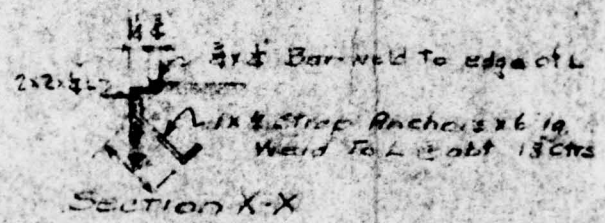 1¼ ¾
¾ x ¼ Bar-weld To edge of L
2x2x¼ L
1x ¼ Strap Anchors x 6 lg
Weld To L @ abt 18" Ctrs
Section X-X